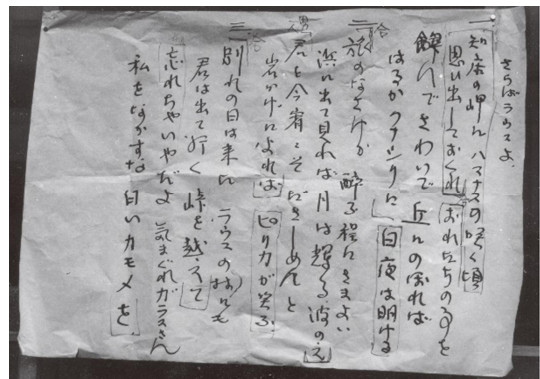 さらばラウスよ
一 知床の岬に ハマナスの咲く頃
思い出しておくれ おれたちの事を
飲んでさわいで 丘にのぼれば
はるかクナシリに 白夜は明ける
合
二 旅のなさけか 酔う程にさまよい
浜に出て見れば 月は輝る波のえ
男 君を今宵こそだきしめんと
合 岩かげによれば ピリカが笑う
三 別れの日は来た ラウスの村にも
君は出て行く 峠を越えて
忘れちゃいやだよ 気まぐれガラスさん
私をなかすな 白いカモメを